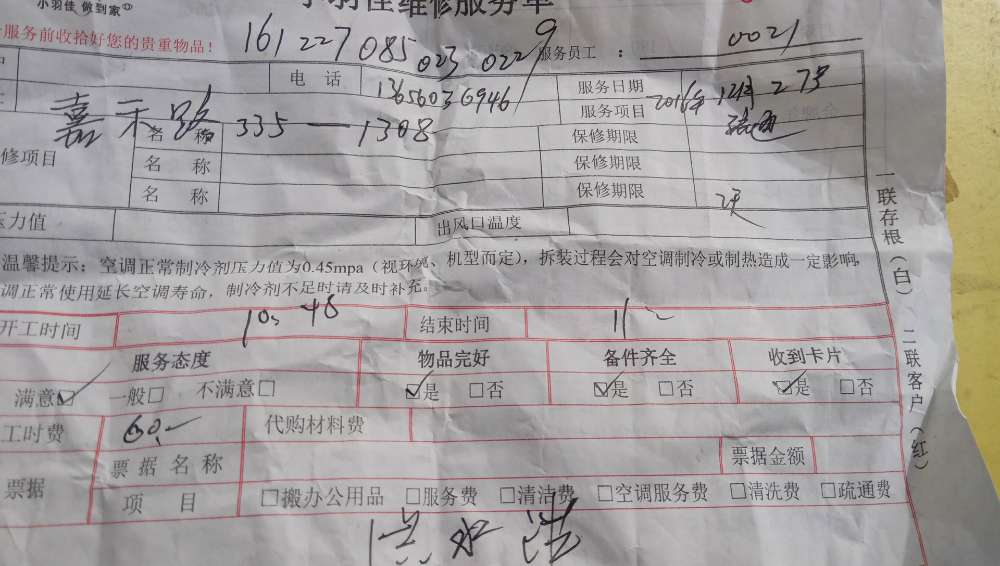 小羽佳 做到家
小羽佳维修服务单
服务前收拾好您的贵重物品!
161 227 085 023 0229 服务员工 : 0021
电 话 13656036946 服务日期 2016年12月27号
嘉禾路335—1308 服务项目
名 称 保修期限
修项目 名 称 保修期限
名 称 保修期限
压力值 出风口温度
温馨提示:空调正常制冷剂压力值为0.45mpa(视环境、机型而定),拆装过程会对空调制冷或制热造成一定影响,
调正常使用延长空调寿命,制冷剂不足时请及时补充。
开工时间 10:48 结束时间 11:-
服务态度 物品完好 备件齐全 收到卡片
满意☑ 一般□ 不满意□ ☑是 □否 ☑是 □否 ☑是 □否
工时费 60.- 代购材料费
票据 票据名称 票据金额
项 目 □搬办公用品 □服务费 □清洁费 □空调服务费 □清洗费 □疏通费
一联存根(白) 二联客户(红)